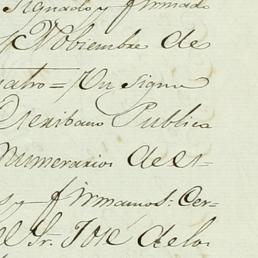 y firmado
Nobiembre de
uatro = Un Signo
Escribano Publico
Numerarios del
y firmamos: Cer-
el Sr. José de los